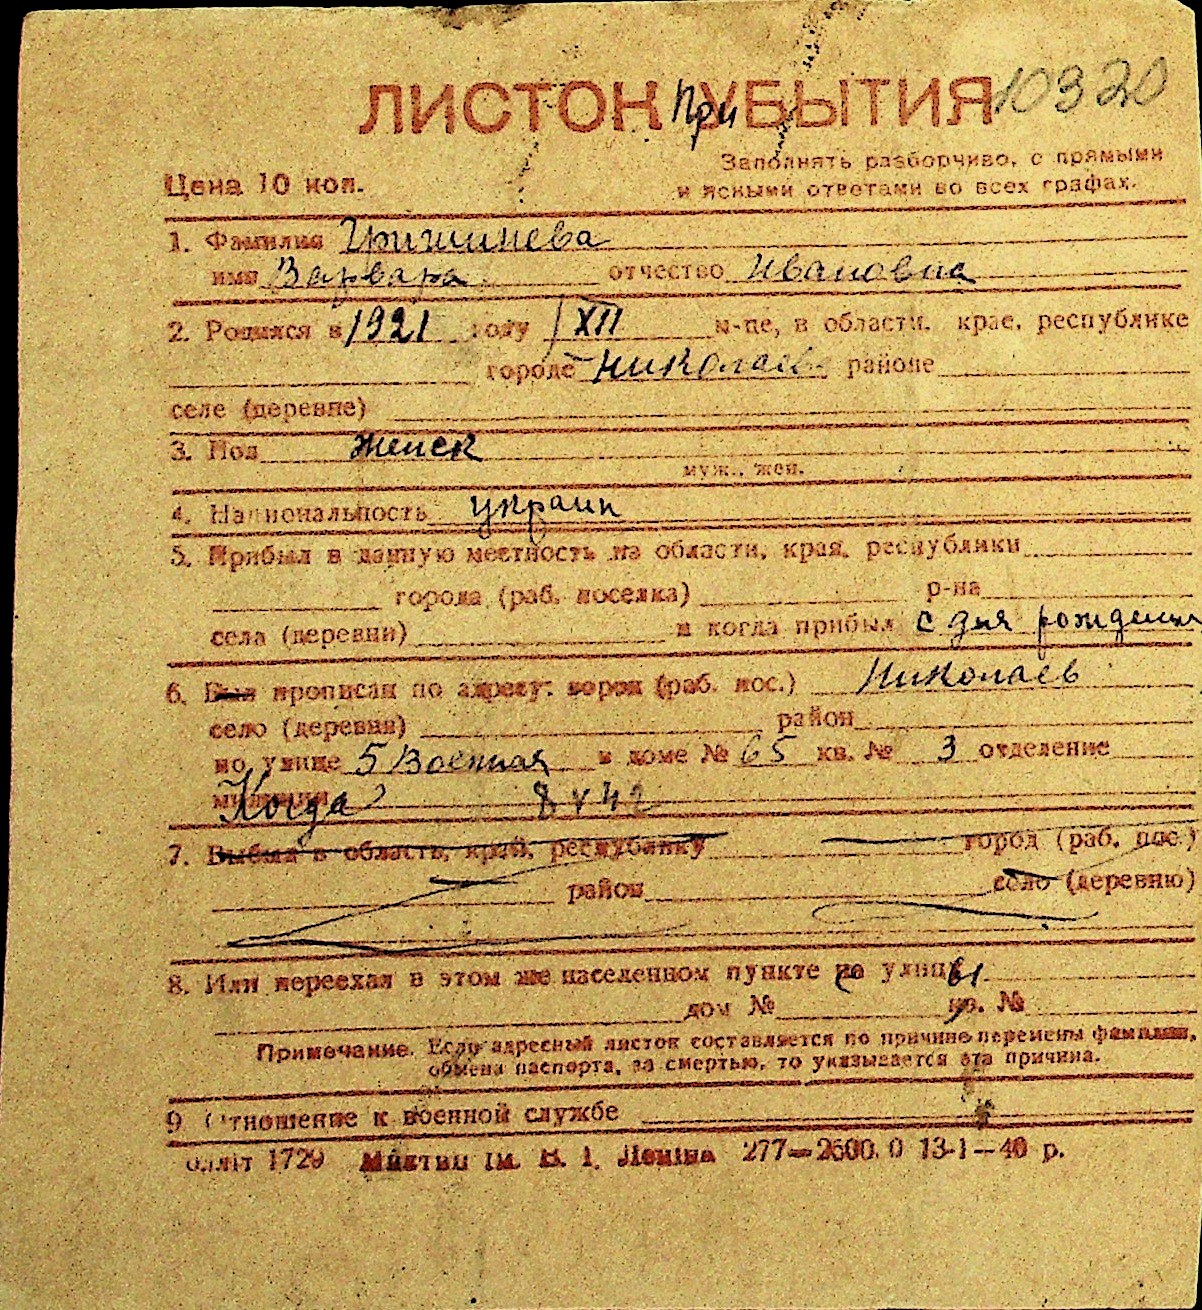 ЛИСТОК При УБЫТИЯ 10320
Заполнять разборчиво, с прямыми
Цена 10 коп.
и ясными ответами во всех графах.
1. Фамилия Гришинева
имя Варвара отчество Ивановна
2. Родился в 1921 году 1/XII м-це, в области, крае, республике
городе Николаев районе
селе (деревне)
3. Пол женск
муж., жен.
4. Национальность украин
5. Прибыл в данную местность из области, края, республики
города (раб. поселка) р-на
села (деревни) и когда прибыл с дня рождения
6. Был прописан по адресу: город (раб. пос.) Николаев
село (деревня) район
по улице 5 Военная в доме № 65 кв. № 3 отделение
милиции Когда 8 V 42
7. Выбыл в область, край, республику город (раб. пос.)
район село (деревню)
8. Или переехал в этом же населенном пункте с улицы
дом № кв. №
Примечание. Если адресный листок составляется по причине перемены фамилии,
обмена паспорта, за смертью, то указывается эта причина.
9 Отношение к военной службе
олліт 1729 ім. В. І. Леніна 277—2600.0 13-1—40 р.